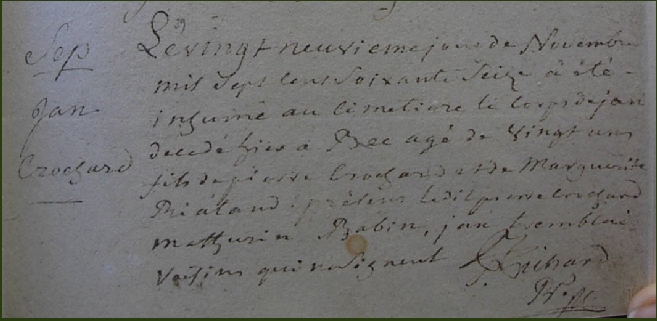 Sep
Jan
Crochard
29
Le vingt neuvieme jour de Novembre
mil sept cent soixante seize a été
ingumé au cimetiere le corps de jan
decedé hier à agé de vingt ans
fils de pierre Crochard et de Marguerite
Rialand présens ledit pierre Crochard
mathurin Rabin, jan tremblai
voisins qui ne signent